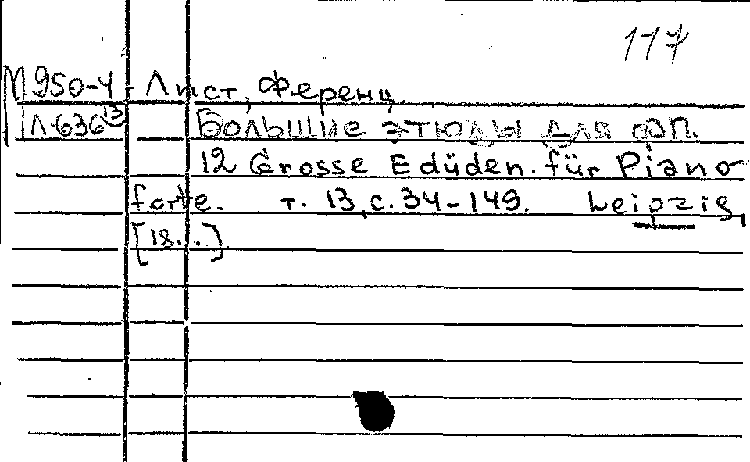 117
М950-4 Лист, Ференц.
Л-636 13 Большие этюды для фп.
12 Grosse Edüden. für Piano-
forte. т. 13, с. 34-149. Leipzig,
[18...].